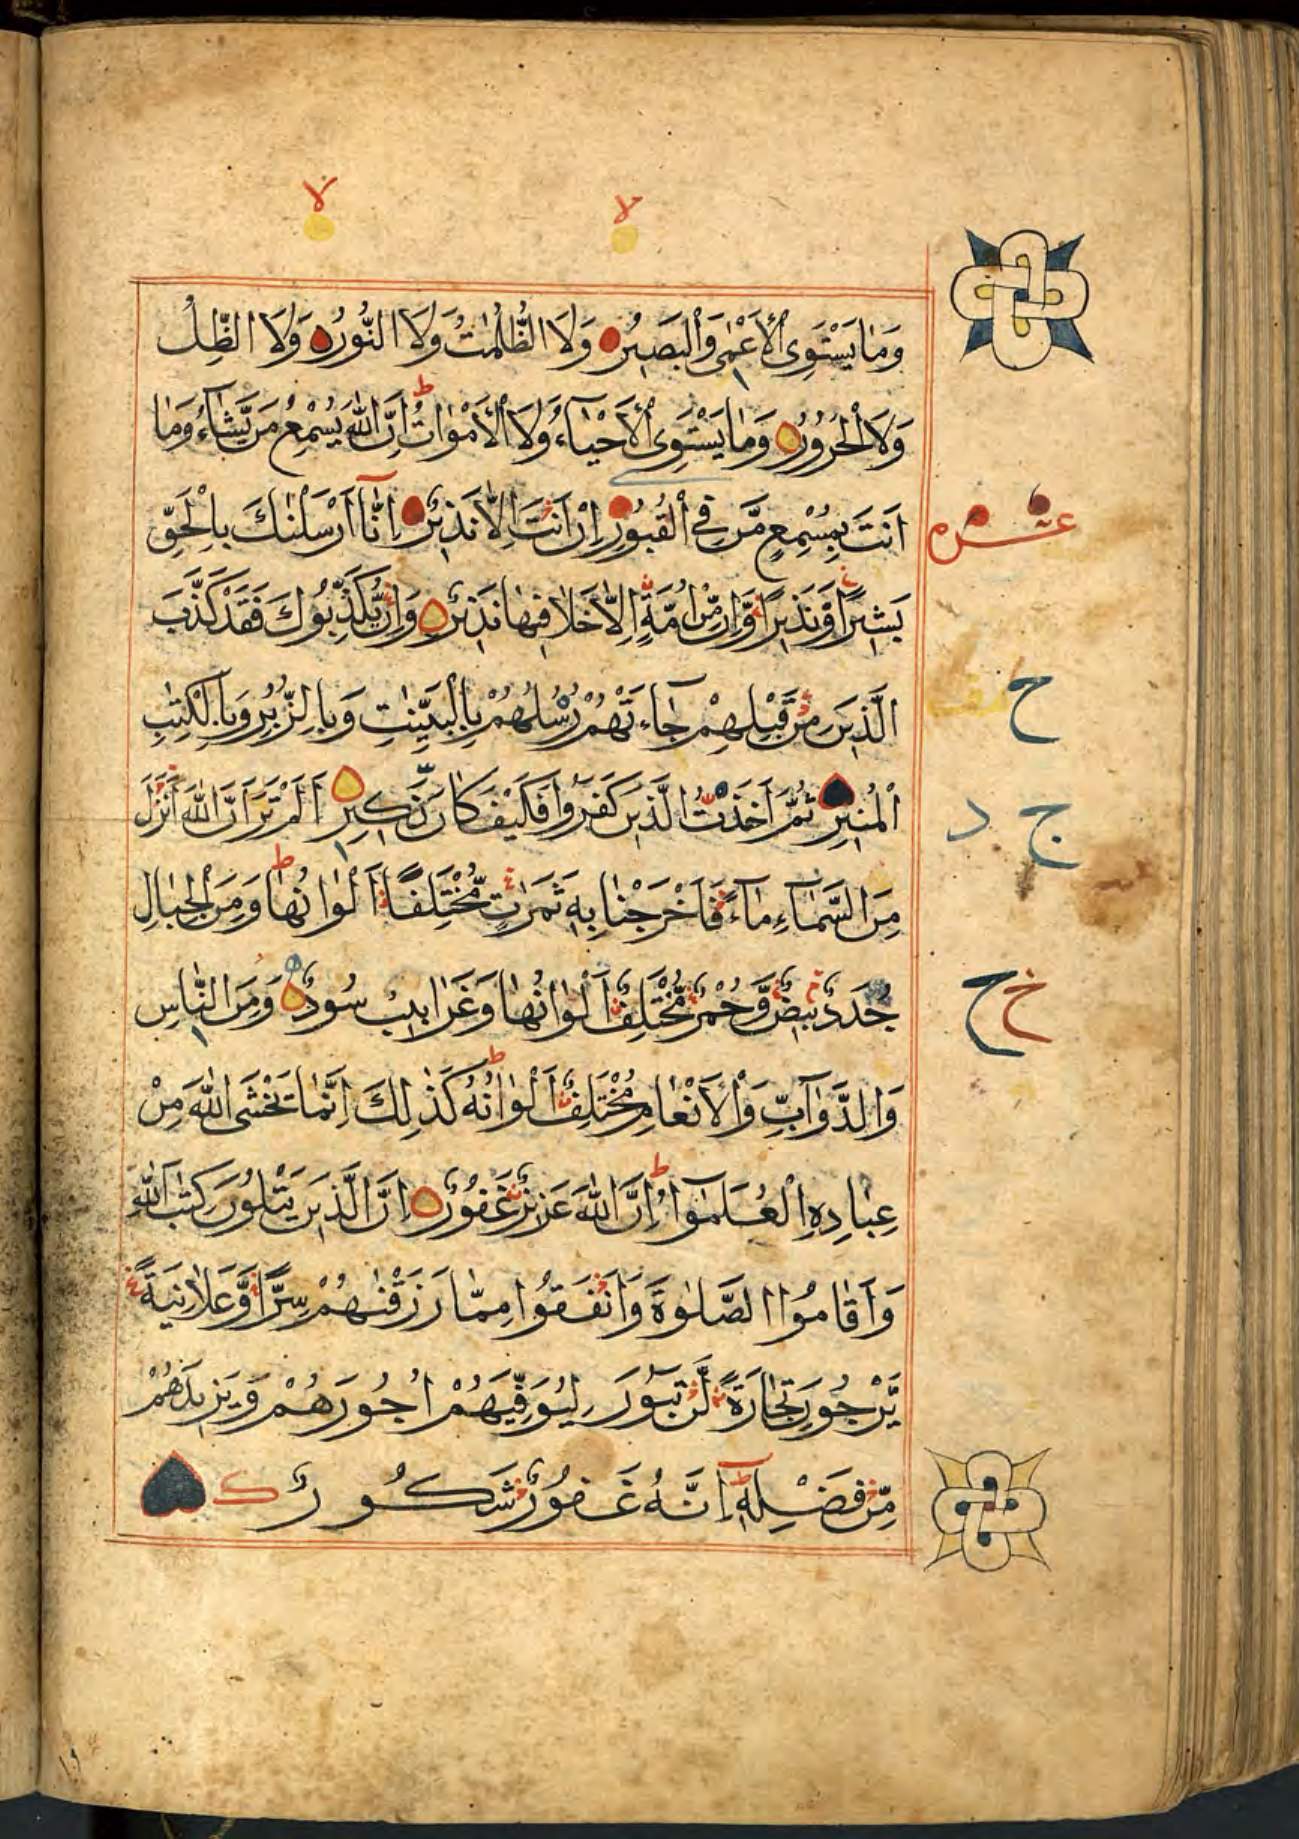 لا لا
وَمَا يَسْتَوِى الْاَعْمٰى وَالْبَصِيرُ وَلَا الظُّلُمٰتُ وَلَا النُّورُ وَلَا الظِّلُّ
وَلَا الْحَرُورُ وَمَا يَسْتَوِى الْاَحْيَآءُ وَلَا الْاَمْوَاتُ ط اِنَّ اللّٰهَ يُسْمِعُ مَنْ يَّشَآءُ وَمَا
اَنْتَ بِمُسْمِعٍ مَّنْ فِى الْقُبُورِ اِنْ اَنْتَ اِلَّا نَذِيرٌ اِنَّآ اَرْسَلْنٰكَ بِالْحَقِّ
عشره
بَشِيرًا وَّنَذِيرًا وَّاِنْ مِّنْ اُمَّةٍ اِلَّا خَلَا فِيهَا نَذِيرٌ وَاِنْ يُّكَذِّبُوكَ فَقَدْ كَذَّبَ
الَّذِينَ مِنْ قَبْلِهِمْ جَآءَتْهُمْ رُسُلُهُمْ بِالْبَيِّنٰتِ وَبِالزُّبُرِ وَبِالْكِتٰبِ
ح
الْمُنِيرِ ثُمَّ اَخَذْتُ الَّذِينَ كَفَرُوا فَكَيْفَ كَانَ نَكِيرِ اَلَمْ تَرَ اَنَّ اللّٰهَ اَنْزَلَ
ج د
مِنَ السَّمَآءِ مَآءً فَاَخْرَجْنَا بِهٖ ثَمَرٰتٍ مُّخْتَلِفًا اَلْوَانُهَا ط وَمِنَ الْجِبَالِ
جُدَدٌ بِيضٌ وَّحُمْرٌ مُّخْتَلِفٌ اَلْوَانُهَا وَغَرَابِيبُ سُودٌ وَمِنَ النَّاسِ
خ ح
وَالدَّوَآبِّ وَالْاَنْعَامِ مُخْتَلِفٌ اَلْوَانُهُ ط كَذٰلِكَ اِنَّمَا يَخْشَى اللّٰهَ مِنْ
عِبَادِهِ الْعُلَمٰٓؤُا ط اِنَّ اللّٰهَ عَزِيزٌ غَفُورٌ اِنَّ الَّذِينَ يَتْلُونَ كِتٰبَ اللّٰهِ
وَاَقَامُوا الصَّلٰوةَ وَاَنْفَقُوا مِمَّا رَزَقْنٰهُمْ سِرًّا وَّعَلَانِيَةً
يَّرْجُونَ تِجَارَةً لَّنْ تَبُورَ لِيُوَفِّيَهُمْ اُجُورَهُمْ وَيَزِيدَهُمْ
مِّنْ فَضْلِهٖ ط اِنَّهُ غَفُورٌ شَكُورٌ ك